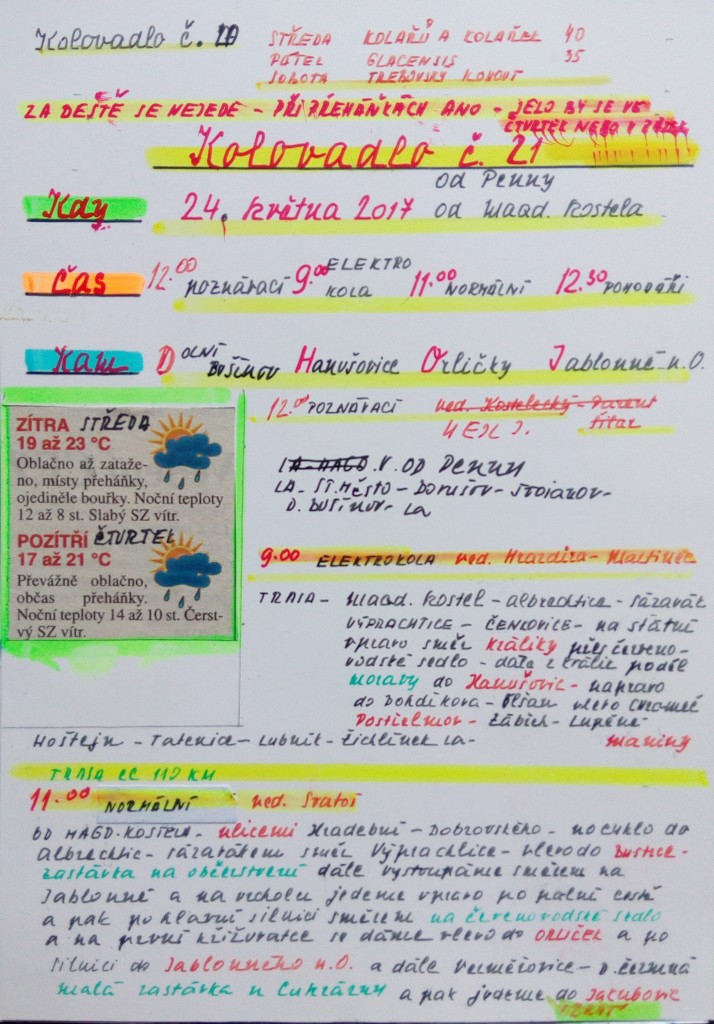 Kolovadlo č. 10
STŘEDA KOLAŘŮ A KOLAŘEK 40
PÁTEK GLACENSIS 35
SOBOTA TŘEBOVSKÝ KOHOUT
ZA DEŠTĚ SE NEJEDE - PŘI PŘEHÁŇKÁCH ANO - JELO BY SE VE
ČTVRTEK NEBO V PÁTEK
Kolovadlo č. 21
od Penny
Kdy 24. května 2017 od Magd. kostela
Čas 12.00 poznávací 9.00 ELEKTRO KOLA 11.00 NORMÁLNÍ 12.30 POHODÁŘI
Kam DOLNÍ BUŠÍNOV Hanušovice Orličky Jablonné n.O.
12.00 POZNÁVACÍ ved. Kostelecký -
ZÍTRA STŘEDA
19 až 23 °C
Oblačno až zataže-
no, místy přeháňky,
ojediněle bouřky. Noční teploty
12 až 8 st. Slabý SZ vítr.
POZÍTŘÍ ČTVRTEK
17 až 21 °C
Převážně oblačno,
občas přeháňky.
Noční teploty 14 až 10 st. Čerst-
vý SZ vítr.
V. OD PENNY
LA. ST. MĚSTO - - -
D. BUŠÍNOV - LA
9.00 ELEKTROKOLA ved. Hrazdira - Martinec
TRASA - Magd. kostel - Albrechtice - Sázavát
VÝPRACHTICE - ČENKOVICE - na státní
vpravo směr Králíky přej červeno-
vodské sedlo - dále z Králík podél
Moravy do Hanušovic - napravo
do Bohdíkova - Olšan vlevo Chromeč
Postřelmov - Zábřeh - Lupěné
Hoštejn - Tatenice - Lubník - Žichlínek LA -
TRASA CC 112 KM
11.00 NORMÁLNÍ ved. Svatoš
OD MAGD. KOSTELA - ulicemi Hradební - Dobrovského - po cyklo do
Albrechtic - Sázavátem směr Výprachtice - vlevo do
zastávka na občerstvení dále vystoupáme směrem na
Jablonné a na vrcholu jedeme vpravo po polní cestě
a pak po hlavní silnici směrem na červenovodské sedlo
a na první křižovatce se dáme vlevo do ORLIČEK a po
silnici do Jablonného n.O. a dále Verměřovice - D. Čermná
malá zastávka u Cukrárny a pak jedeme do Jakubovic